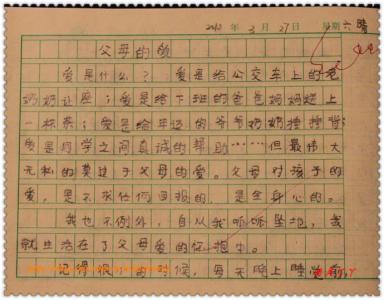 2010年3月27日 星期六 晴
父母的爱
爱是什么？爱是给公交车上的老
奶奶让座；爱是给下班的爸爸妈妈送上
一杯茶；爱是给年迈的爷爷奶奶捶捶背；
爱是同学之间真诚的帮助……但最伟大
无私的莫过于父母的爱。父母对孩子的
爱，是不求任何回报的，是全身心的。
我也不例外，自从我呱呱坠地，我
就生活在了父母爱的怀抱中。
记得很 的时候，每天晚上睡觉前